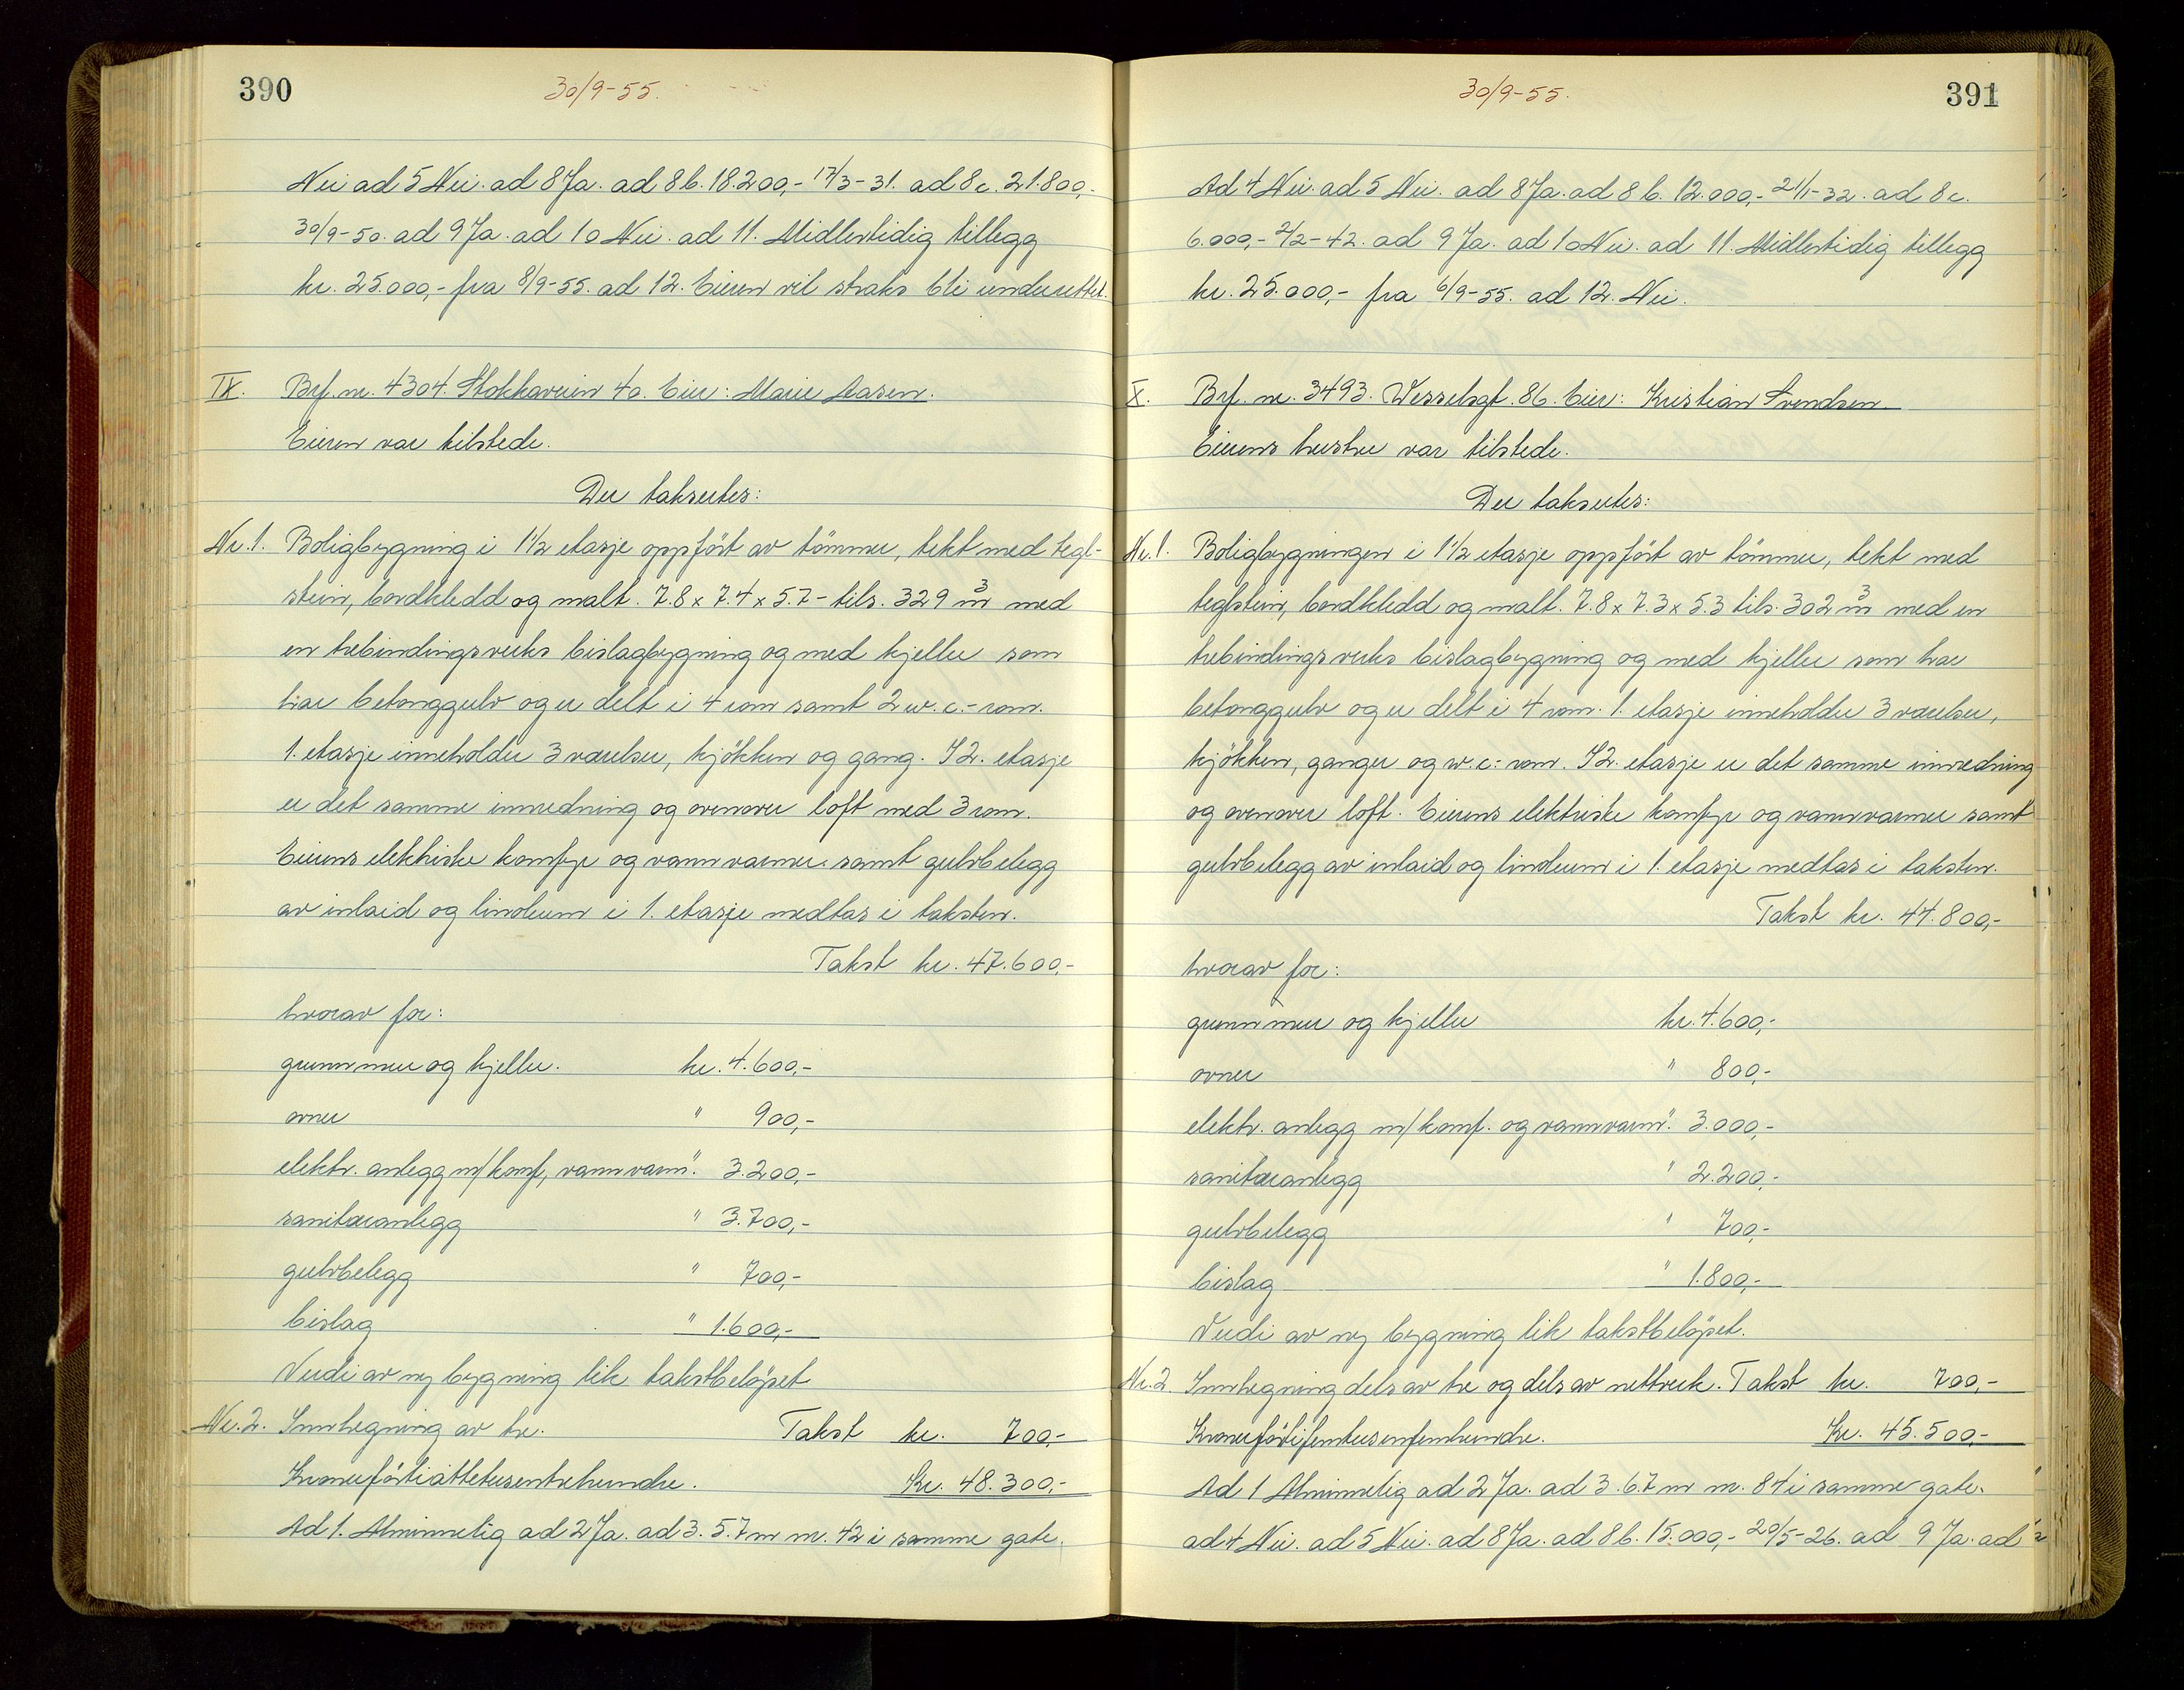 390
30/9-55.
Nei ad 5 Nei. ad 8 Ja. ad 8 b. 18.200,- 17/3-31. ad 8 c. 21.800,-
30/9-50. ad 9 Ja. ad 10 Nei. ad 11. Midlertidig tillegg
kr. 25.000,- fra 8/9-55. ad 12. Eieren vil straks bli underrettet.
IX. Brf. nr. 4304. Stokkaveien 40. Eier: Marie Aasen.
Eieren var tilstede.
Der takseres:
Nr. 1. Boligbygning i 1 1/2 etasje oppført av tømmer, tekt med tegl-
stein, bordkledd og malt. 7.8 x 7.4 x 5.7 - tils. 329 m3 med
en trebindingsverks bislagbygning og med kjeller som
har betonggulv og er delt i 4 rom samt 2 w.c.-rom.
1. etasje inneholder 3 værelser, kjøkken og gang. I 2. etasje
er det samme innredning og ovenover loft med 3 rom.
Eierens elektriske komfyr og vannvarmer samt gulvbelegg
av inlaid og linoleum i 1. etasje medtas i taksten.
Takst kr. 47.600,-
hvorav for:
grunnmur og kjeller. kr. 4.600,-
ovner " 900,-
elektr. anlegg m/komf, vannvarm. " 3.200,-
sanitæranlegg " 3.700,-
gulvbelegg " 700,-
bislag " 1.600,-
Verdi av ny bygning lik takstbeløpet
Nr. 2. Innhegning av tre. Takst kr. 700,-
Kronerførtiåttetusentrehundre. Kr. 48.300,-
Ad 1. Alminnelig ad 2 Ja. ad 3. 5.7 m nr. 42 i samme gate.
391
30/9-55.
Ad 4 Nei. ad 5 Nei. ad 8 Ja. ad 8 b. 12.000,- 21/1-32. ad 8 c.
6.000,- 2/2-42. ad 9 Ja. ad 10 Nei. ad 11. Midlertidig tillegg
kr. 25.000,- fra 6/9-55. ad 12. Nei.
X. Brf. nr. 3493. Wesselsgt. 86. Eier: Kristian Svendsen.
Eierens hustru var tilstede.
Der takseres:
Nr. 1. Boligbygningen i 1 1/2 etasje oppført av tømmer, tekt med
teglstein, bordkledd og malt. 7.8 x 7.3 x 5.3 tils. 302 m3 med en
trebindingsverks bislagbygning og med kjeller som har
betonggulv og er delt i 4 rom. 1. etasje inneholder 3 værelser,
kjøkken, ganger og w.c.-rom. I 2. etasje er det samme innredning
og ovenover loft. Eierens elektriske komfyr og vannvarmer samt
gulvbelegg av inlaid og linoleum i 1. etasje medtas i taksten.
Takst kr. 44.800,-
hvorav for:
grunnmur og kjeller kr. 4.600,-
ovner " 800,-
elektr. anlegg m/komf. og vannvarm. " 3.000,-
sanitæranlegg " 2.200,-
gulvbelegg " 700,-
bislag " 1.800,-
Verdi av ny bygning lik takstbeløpet.
Nr. 2 Innhegning dels av tre og dels av nettverk. Takst kr. 700,-
Kronerførtifemtusenfemhundre. Kr. 45.500,-
Ad 1 Alminnelig ad 2 Ja. ad 3. 6.7 m nr. 84 i samme gate.
ad 4 Nei. ad 5 Nei. ad 8 Ja. ad 8 b. 15.000,- 20/5-26. ad 9 Ja. ad